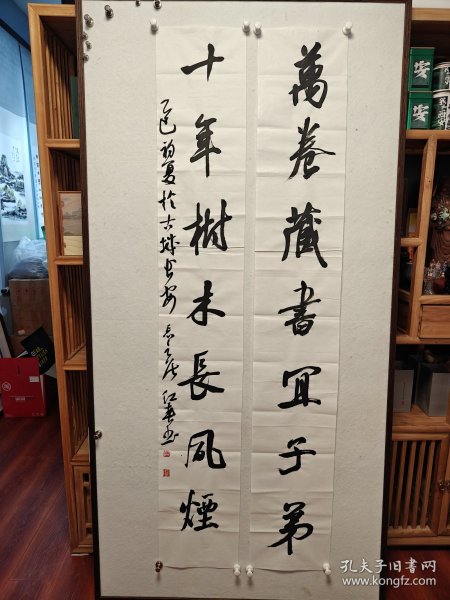 萬卷藏書宜子弟
十年樹木長風煙
乙巳初夏於古城長安
安
安
孔夫子旧书网
www.kongfz.com